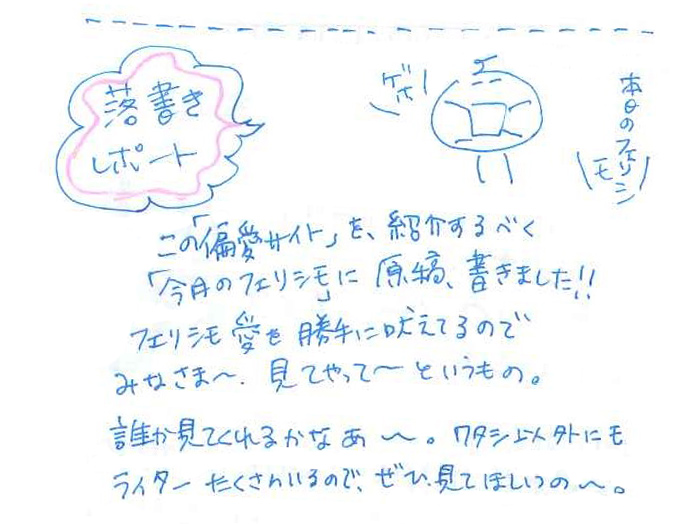 落書き
レポート
ゲホー
本日のフェリシモ
この「偏愛サイト」を、紹介するべく
「今月のフェリシモ」に 原稿、書きました!!
フェリシモ愛を勝手に吠えてるので
みなさま〜、見てやって〜というもの。
誰か見てくれるかなぁ〜。ワタシ以外にも
ライターたくさんいるので、ぜひ、見てほしいの〜。